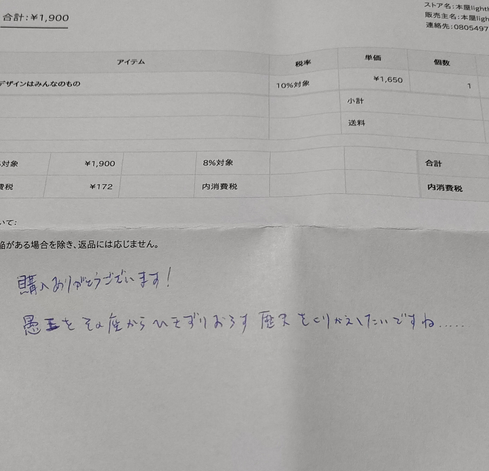 合計:¥1,900
ストア名:本屋light
販売主名:本屋light
連絡先:0805497
アイテム 税率 単価 個数
デザインはみんなのもの 10%対象 ¥1,650 1
小計
送料
対象 ¥1,900 8%対象 合計
費税 ¥172 内消費税 内消費税
いて:
陥がある場合を除き、返品には応じません。
購入ありがとうございます!
愚王をその座からひきずりおろす歴史をくりかえしたいですね.....